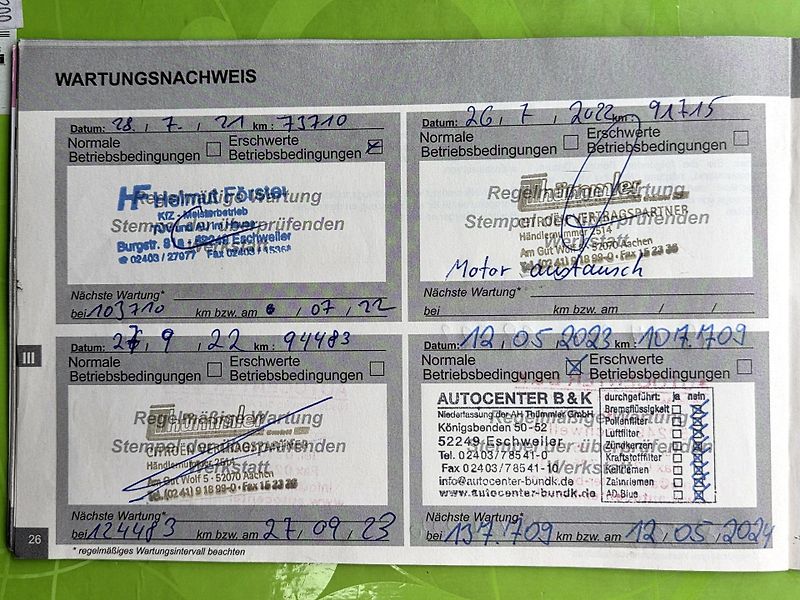 WARTUNGSNACHWEIS
Datum: 28. 7. 21 km: 73710
Normale Betriebsbedingungen
Erschwerte Betriebsbedingungen
Regelmäßige Wartung
Stempel der überprüfenden
Werkstatt
HF Helmut Förster
Kfz - Meisterbetrieb
TÜV und AU im Hause
Eschweiler
02403 / 27977 Fax 02403 /
Nächste Wartung*
bei 103710 km bzw. am / 07 / 22
Datum: 26, 7, 2022 km: 91715
Normale Betriebsbedingungen
Erschwerte Betriebsbedingungen
Regelmäßige Wartung
Stempel der überprüfenden
Werkstatt
Thümmler
CITROËN VERTRAGSPARTNER
Händlernummer 2514
Am Gut Wolf 5 - 52070 Aachen
Tel. (02 41) 9 18 99-0 - Fax 15 23 36
Motor austausch
Nächste Wartung*
bei km bzw. am / /
Datum: 27, 9, 22 km: 94483
Normale Betriebsbedingungen
Erschwerte Betriebsbedingungen
Regelmäßige Wartung
Stempel der überprüfenden
Werkstatt
Thümmler
CITROËN VERTRAGSPARTNER
Händlernummer 2514
Am Gut Wolf 5 - 52070 Aachen
Tel. (02 41) 9 18 99-0 - Fax 15 23 36
Nächste Wartung*
bei 124483 km bzw. am 27/09/23
Datum: 12, 05, 2023 km: 107.709
Normale Betriebsbedingungen
Erschwerte Betriebsbedingungen
Regelmäßige Wartung
Stempel der überprüfenden
Werkstatt
AUTOCENTER B&K
Niederlassung der AH Thümmler GmbH
Königsbenden 50-52
52249 Eschweiler
Tel. 02403/78541-0
Fax 02403/78541-10
info@autocenter-bundk.de
www.autocenter-bundk.de
durchgeführt: ja nein
Bremsflüssigkeit
Pollenfilter
Luftfilter
Zündkerzen
Kraftstofffilter
Keilriemen
Zahnriemen
AD Blue
Nächste Wartung*
bei 137.709 km bzw. am 12/05/2024
* regelmäßiges Wartungsintervall beachten
III
26